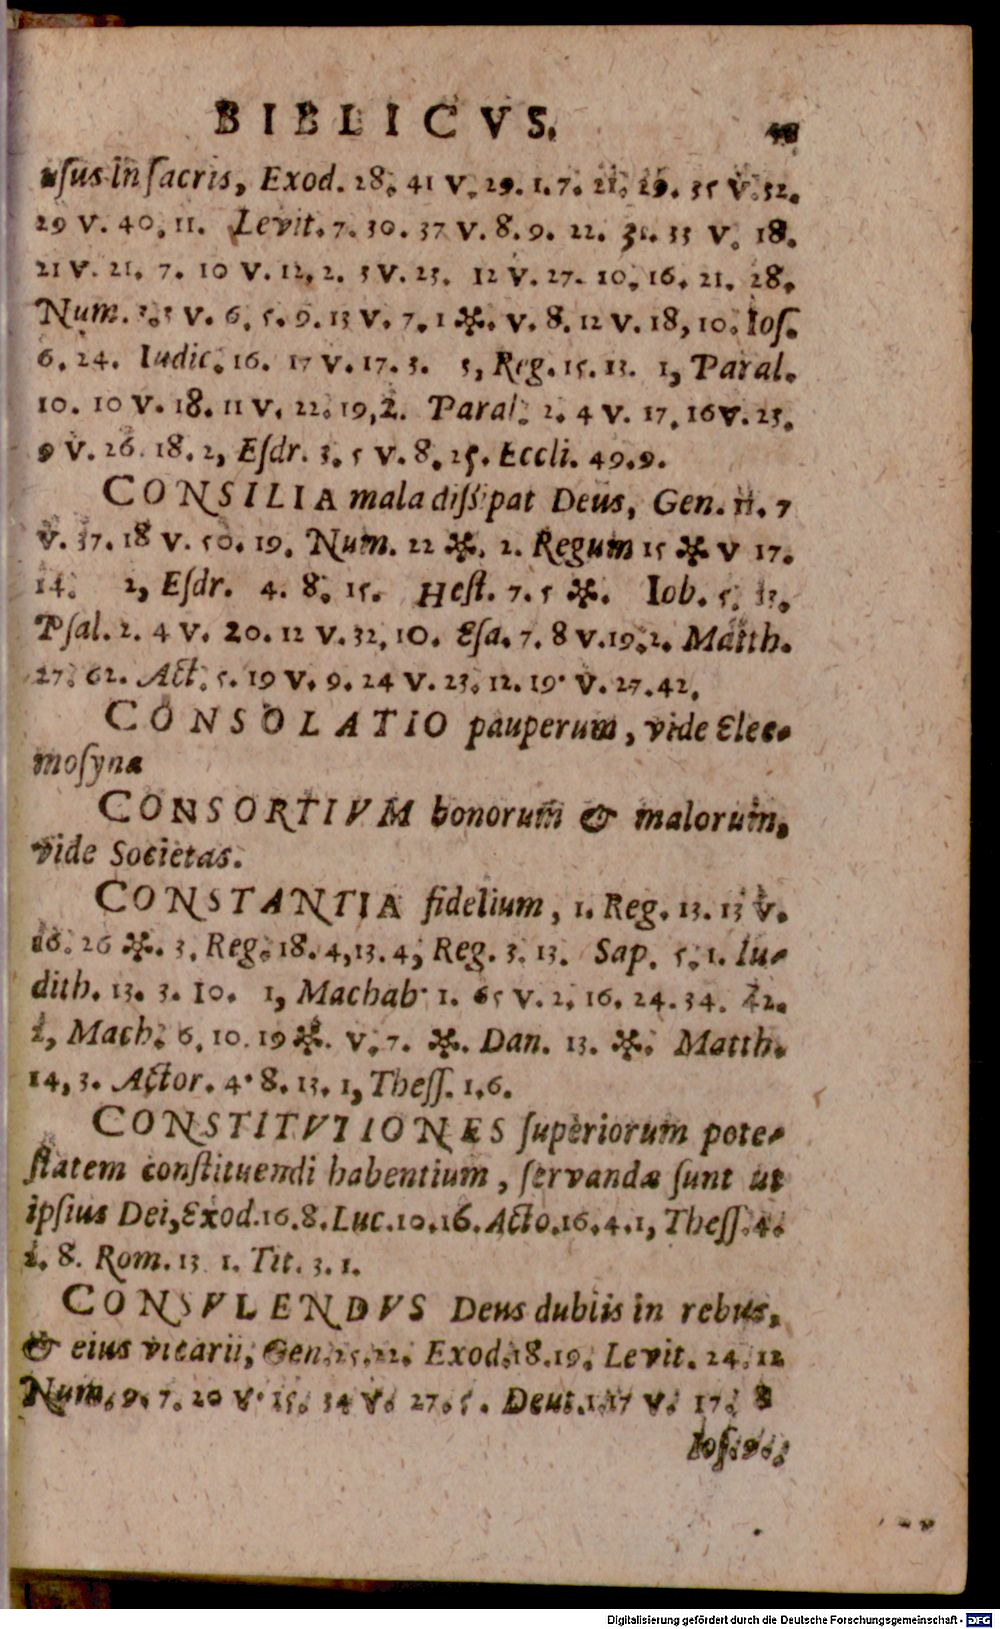 BIBLICVS.
usus in sacris, Exod. 28. 41 v. 29. 1. 7. 21. 29. 35 v. 32.
29 v. 40, 11. Levit. 7. 30. 37 v. 8. 9. 22. 31. 33 v. 18.
21 v. 21. 7. 10 v. 12, 2. 3 v. 23. 12 v. 27. 10. 16. 21. 28.
Num. 3. 3 v. 6. 5. 9. 13 v. 7. 1 ✼. v. 8. 12 v. 18, 10. Ios.
6. 24. Iudic. 16. 17 v. 17. 3. 3, Reg. 15. 13. 1, Paral.
10. 10 v. 18. 11 v. 22. 19, 2. Paral. 2. 4 v. 17. 16 v. 23.
9 v. 26. 18. 2, Esdr. 3. 5 v. 8. 25. Eccli. 49. 9.
CONSILIA mala dissipat Deus, Gen. 11. 7
v. 37. 18 v. 50. 19. Num. 22 ✼. 2. Regum 15 ✼ v 17.
14. 2, Esdr. 4. 8. 15. Hest. 7. 5 ✼. Iob. 5. 13.
Psal. 2. 4 v. 20. 12 v. 32, 10. Esa. 7. 8 v. 19. 2. Matth.
27. 62. Act. 5. 19 v. 9. 24 v. 23. 12. 19. v. 27. 42.
CONSOLATIO pauperum, vide Elee-
mosyna
CONSORTIVM bonorum & malorum,
vide Societas.
CONSTANTIA fidelium, 1. Reg. 13. 13 v.
16. 26 ✼. 3. Reg. 18. 4, 13. 4, Reg. 3. 13. Sap. 5. 1. Iu-
dith. 13. 3. 10. 1, Machab. 1. 65 v. 2. 16. 24. 34. 42.
2, Mach. 6. 10. 19 ✼. v. 7. ✼. Dan. 13. ✼. Matth.
14, 3. Actor. 4. 8. 13. 1, Thess. 1. 6.
CONSTITVTIONES superiorum pote-
statem constituendi habentium, servandæ sunt ut
ipsius Dei, Exod. 16. 8. Luc. 10. 16. Acto. 16. 4. 1, Thess. 4.
2. 8. Rom. 13 1. Tit. 3. 1.
CONSVLENDVS Deus dubiis in rebus,
& eius vicarii, Gen. 25. 22. Exod. 18. 19. Levit. 24. 12
Num. 9. 7. 20 v. 15. 34 v. 27. 5. Deut. 1. 17 v. 17. 8
Ios. 9.
Digitalisierung gefördert durch die Deutsche Forschungsgemeinschaft - DFG